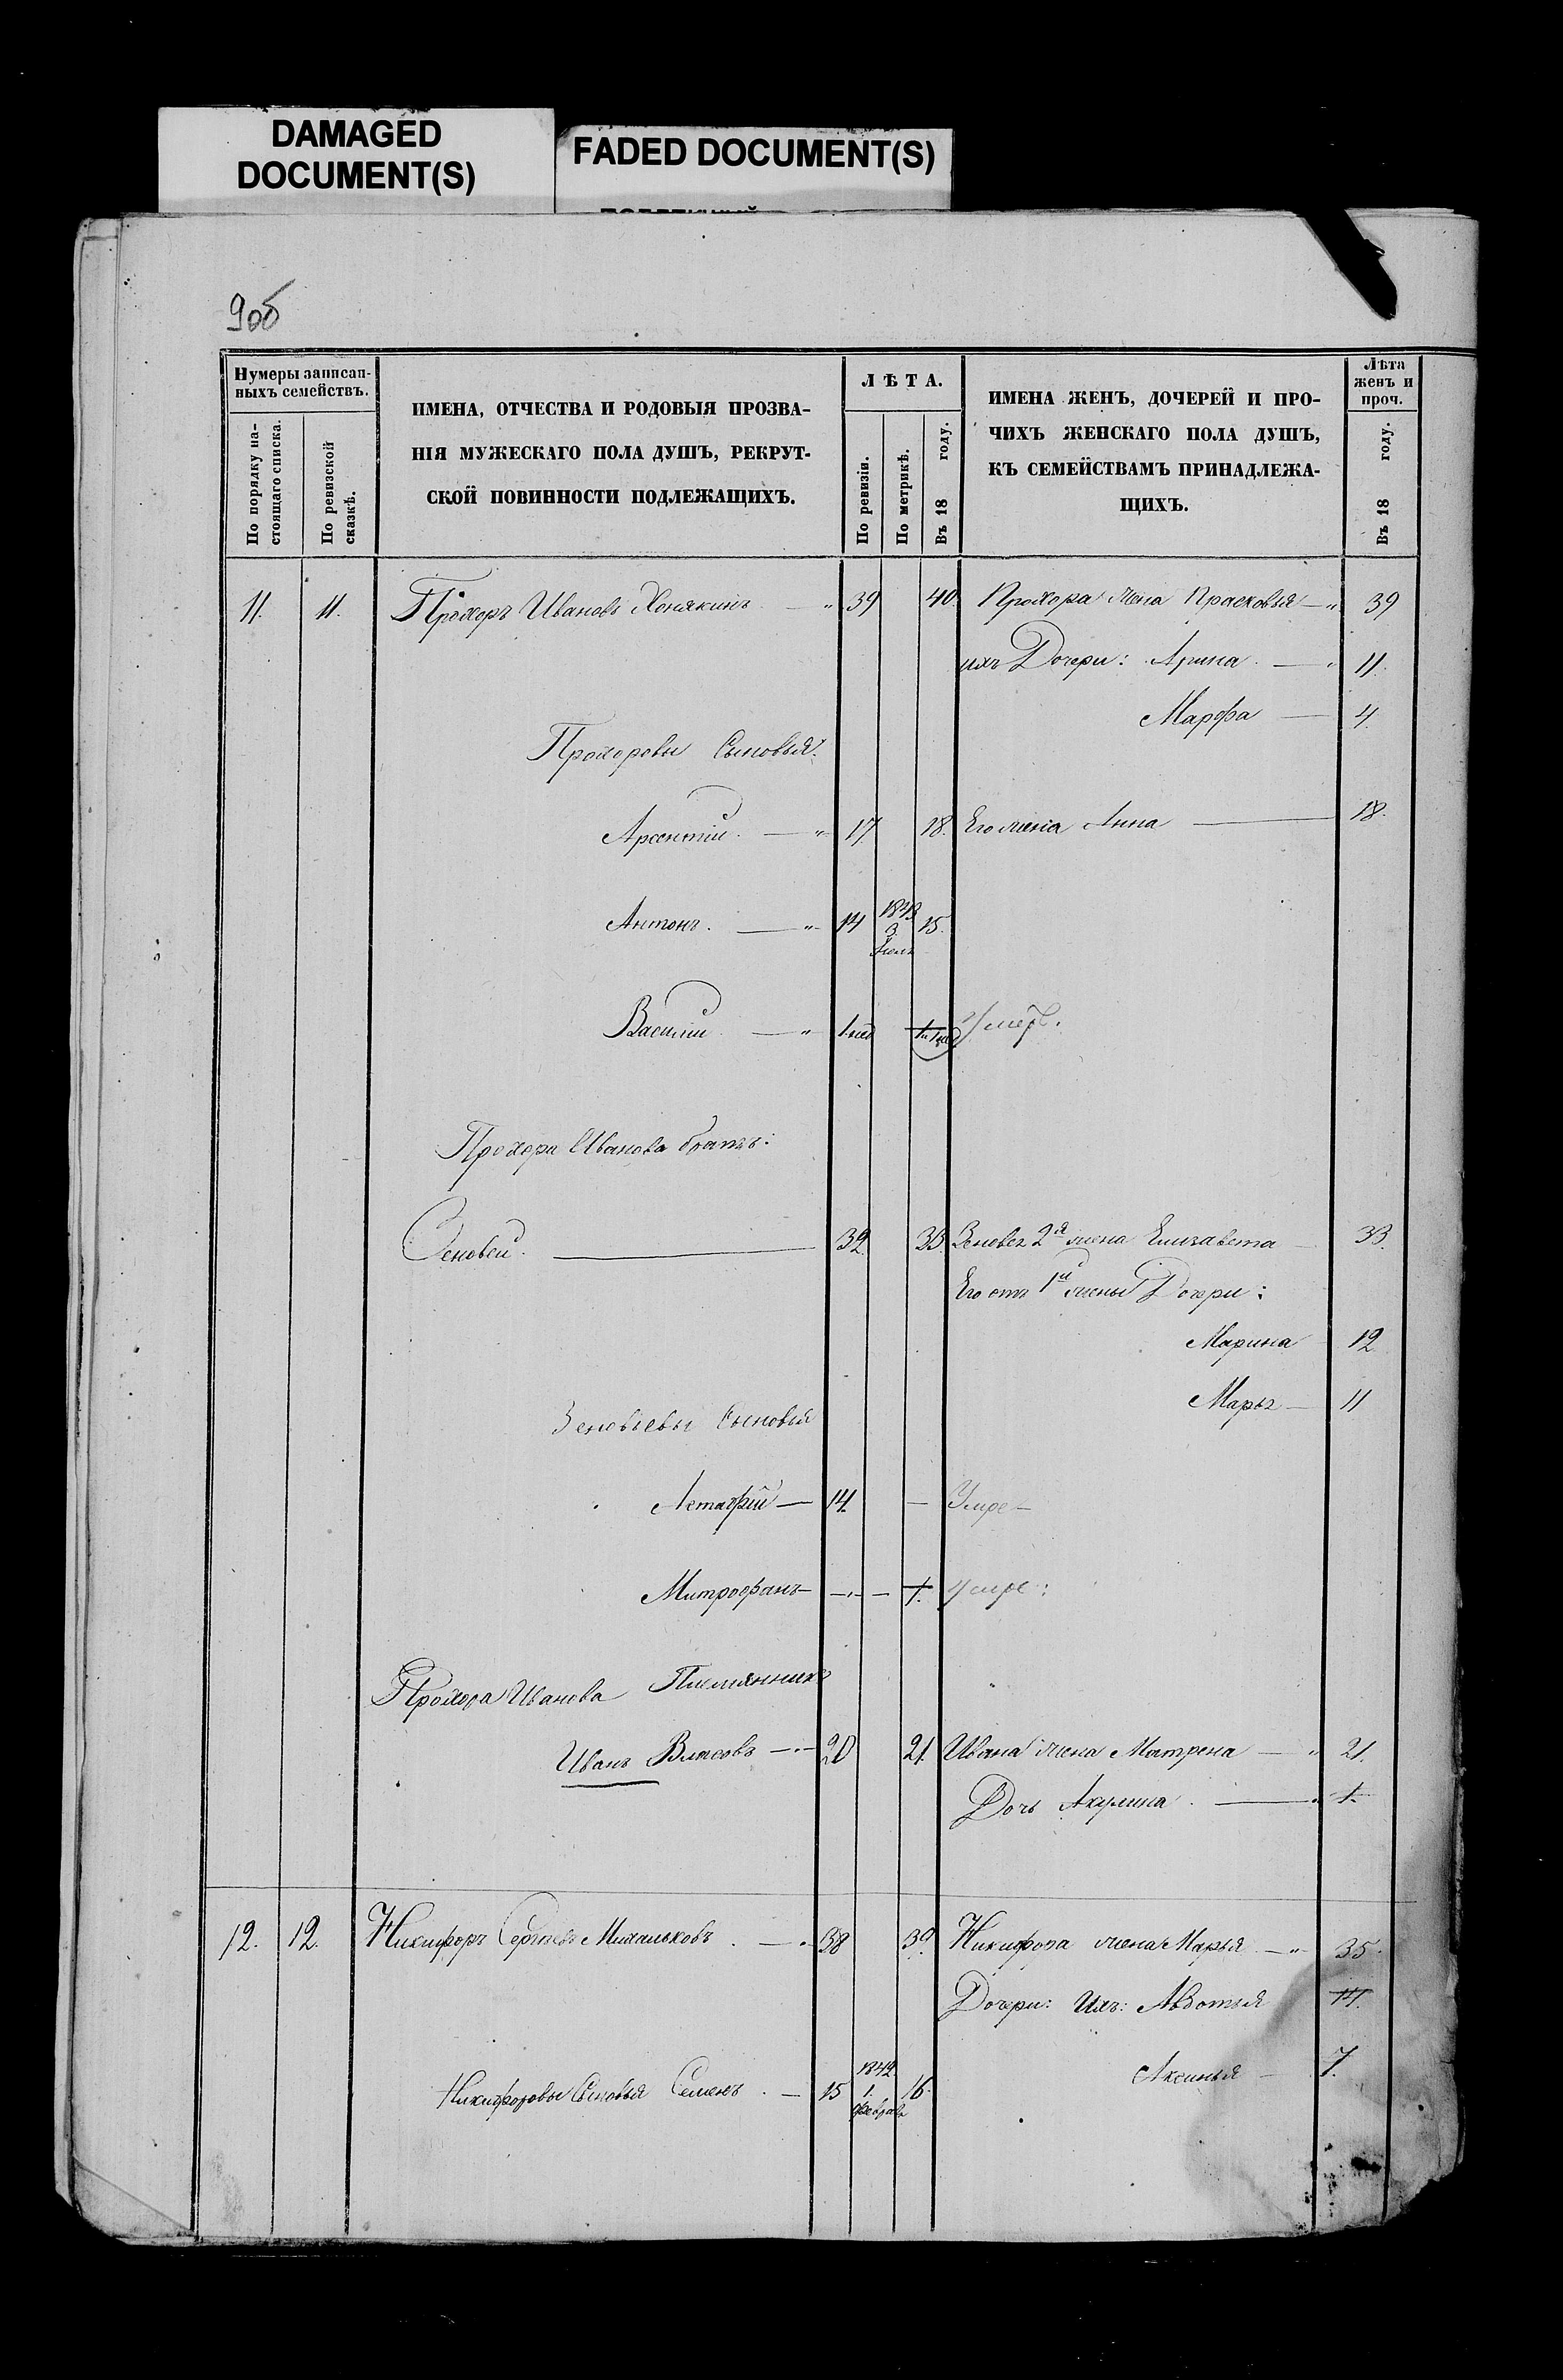 DAMAGED
DOCUMENT(S)
FADED DOCUMENT(S)
9об
Нумеры записан-
ныхъ семействъ.
По порядку на-
стоящаго списка.
По ревизской
сказкѣ.
ИМЕНА, ОТЧЕСТВА И РОДОВЫЯ ПРОЗВА-
НІЯ МУЖЕСКАГО ПОЛА ДУШЪ, РЕКРУТ-
СКОЙ ПОВИННОСТИ ПОДЛЕЖАЩИХЪ.
ЛѢТА.
По ревизіи.
По метрикѣ.
Въ 18 году.
ИМЕНА ЖЕНЪ, ДОЧЕРЕЙ И ПРО-
ЧИХЪ ЖЕНСКАГО ПОЛА ДУШЪ,
КЪ СЕМЕЙСТВАМЪ ПРИНАДЛЕЖА-
ЩИХЪ.
Лѣта
женъ и
проч.
Въ 18 году.
11. 11. Прохоръ Ивановъ Хонякинъ — " 39 40. Прохора жена Прасковья — " 39
ихъ Дочери: Арина — " 11.
Марфа — 4.
Прохоровы Сыновья:
Арсентій — " 17 18. Его жена Анна — 18.
Антонъ. — " 14 1843 3 Іюля 15.
Василій — " 1 нед Умеръ.
Прохора Иванова братъ:
Зеновей. — 32 33. Зеновея 2я жена Елизавета 33.
Его отъ 1й жены Дочери:
Марина 12
Марья — 11
Зеновьевы Сыновья
Астафій — 14. — Умре —
Митрофанъ — " — 1. Умре:
Прохора Иванова Племянникъ
Иванъ Власовъ — " — 20 21. Ивана жена Матрена — " 21.
Дочь Акулина. — " 1.
12. 12. Никифоръ Сергѣевъ Михальковъ. — " 38 39. Никифора жена Марья — " 35.
Дочери: Ихъ: Авдотья 14.
Аксинья — 7.
Никифоровы Сыновья Семенъ. — 15 1842 1. февраля 16.